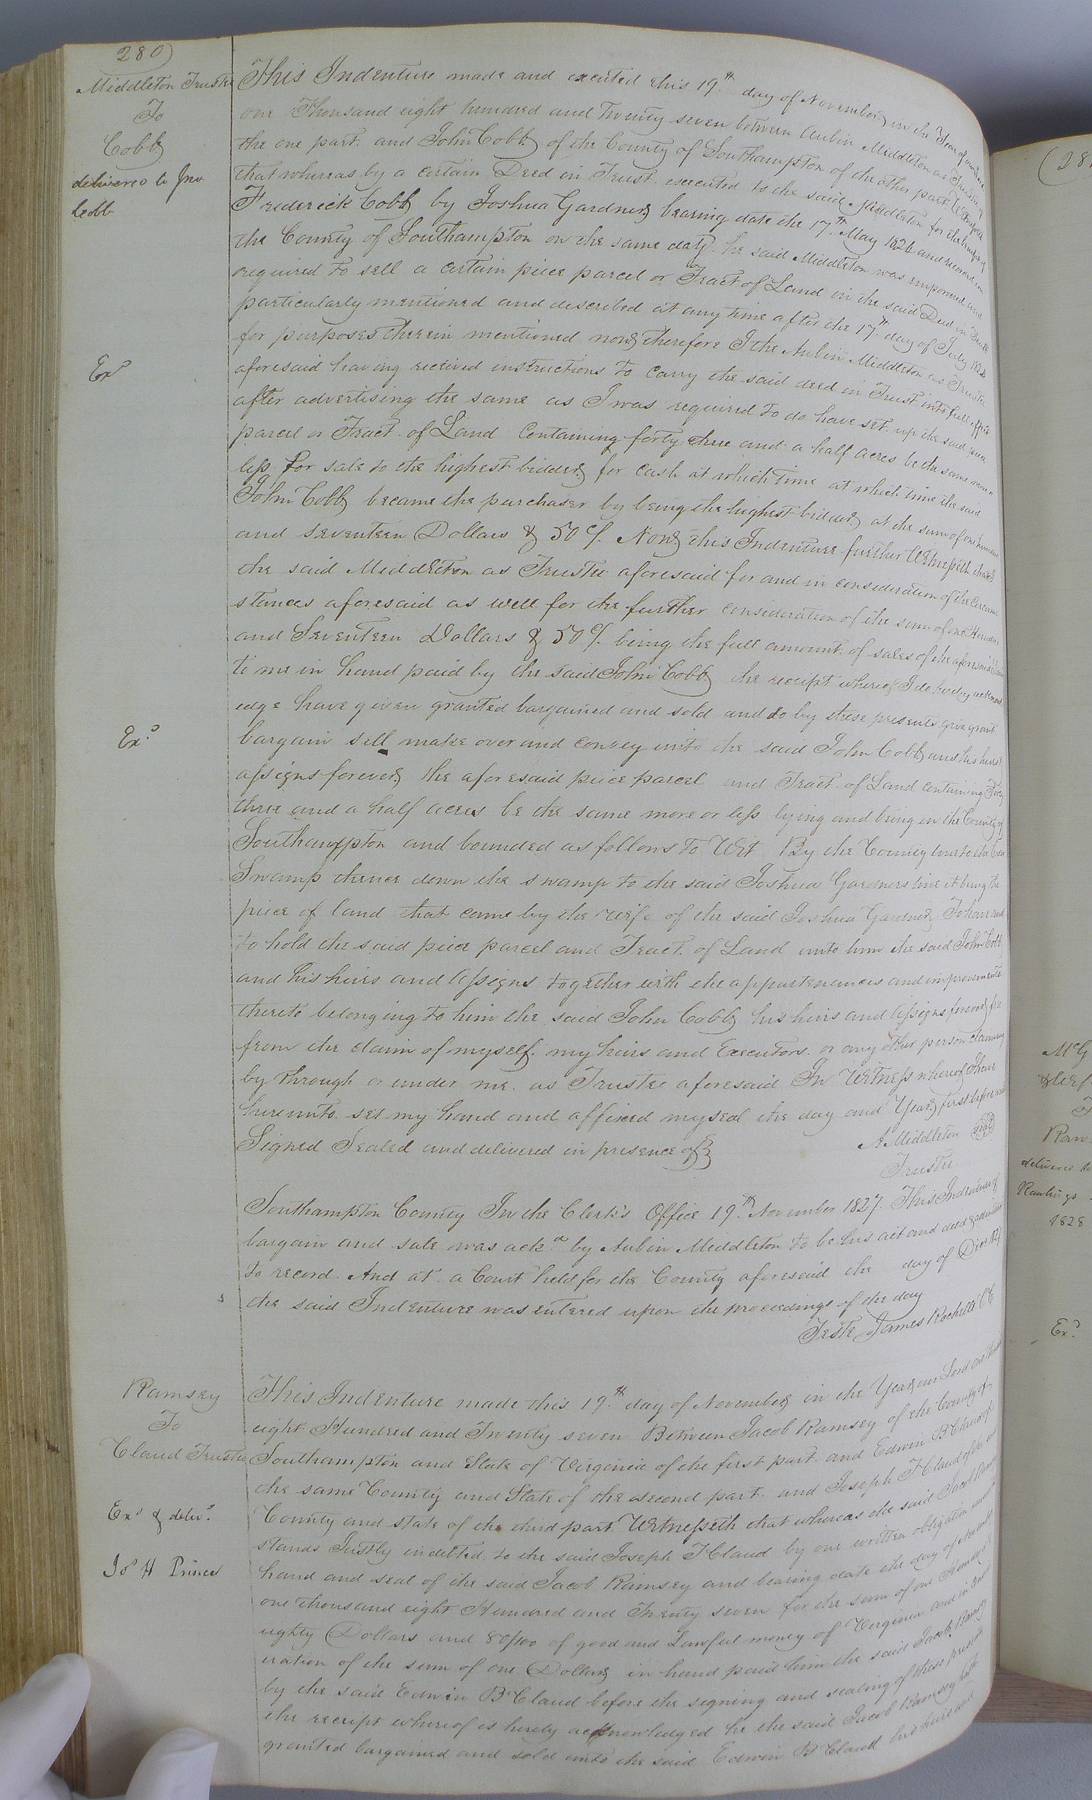 280
Middleton Trustee
To
Cobb
delivered to Jno
Cobb
This Indenture made and excuted this 19th day of November in the Year of our Lord
one Thousand eight hundred and Twenty seven between Aubin Middleton as Trustee of
the one part and John Cobb of the County of Southampton of the other part Witnesseth
that whereas by a certain Deed in Trust executed to the said Middleton for the benefit of
Frederick Cobb by Joshua Gardner bearing date the 17th May 1826 and record in
the County of Southampton on the same date he said Middleton was empowered and
required to sell a certain piece parcel or Tract of Land in the said Deed in Trust
particularly mentioned and described at any time after the 17th day of July 1826
for purposes therein mentioned now therefore I the Aubin Middleton as Trustee
Exd
aforesaid having recieved instructions to carry the said deed in Trust into full effect
after advertising the same as I was required to do have set up the said piece
parcel or Tract of Land Containing forty three and a half acres be the same more or
less for sale to the highest bidder for cash at which time at which time the said
John Cobb became the purchaser by being the highest bidder at the sum of one hundred
and seventeen Dollars & 50 c/. Now this Indenture further Witnesseth that I
the said Middleton as Trustee aforesaid for and in consideration of the Circum
stances aforesaid as well for the further consideration of the sum of one Hundred
and Seventeen Dollars & 50 c/. being the full amount of sales of the aforesaid
to me in hand paid by the said John Cobb the receipt whereof I do hereby acknowl
edge have given granted bargained and sold and do by these presents give grant
Exd
bargain sell make over and convey unto the said John Cobb and his heirs
assigns forever the aforesaid piece parcel and Tract of Land containing Forty
three and a half acres be the same more or less lying and being in the County of
Southampton and bounded as follows To Wit By the County line to the
Swamp thence down the swamp to the said Joshua Gardners line it being the
piece of land that came by the wife of the said Joshua Gardner To have and
to hold the said piece parcel and Tract of Land unto him the said John Cobb
and his heirs and assigns together with the appurtenances and improvements
thereto belonging to him the said John Cobb his heirs and assigns forever free
from the claim of myself my heirs and Executors or any other person claiming
by through or under me as Trustee aforesaid In Witness whereof I have
hereunto set my hand and affixed my seal the day and Year first above
Signed Sealed and delivered in presence of
A Middleton Seal
Trustee
Southampton County In the Clerk's Office 19th November 1827. This Indenture of
bargain and sale was ackd by Aubin Middleton to be his act and deed & admitted
to record. And at a Court held for the County aforesaid the day of Decr 1827
the said Indenture was entered upon the proceedings of the day
Teste James Rochelle CC
Ramsey
To
Claud Trustee
Exd & delivd
Jo H Prince
This Indenture made this 19th day of November in the Year our Lord one thousand
eight Hundred and Twenty seven Between Jacob Ramsey of the County of
Southampton and State of Virginia of the first part and Edwin B Claud of
the same County and State of the second part and Joseph T Claud of the
County and state of the third part Witnesseth that whereas the said Jacob Ramsey
stands Justly indebted to the said Joseph T Claud by one written obligation under
hand and seal of the said Jacob Ramsey and bearing date the day of November
one thousand eight Hundred and Twenty seven for the sum of one Hundred
eighty Dollars and 80/100 of good and Lawful money of Virginia and in consid
eration of the sum of one Dollar in hand paid him the said Jacob Ramsey
by the said Edwin B Claud before the signing and sealing of these presents
the receipt whereof is hereby acknowledged he the said Jacob Ramsey hath
granted bargained and sold unto the said Edwin B Claud his heirs and
(28
McG
Raw
delivered to
Rawlings
1828
Exd